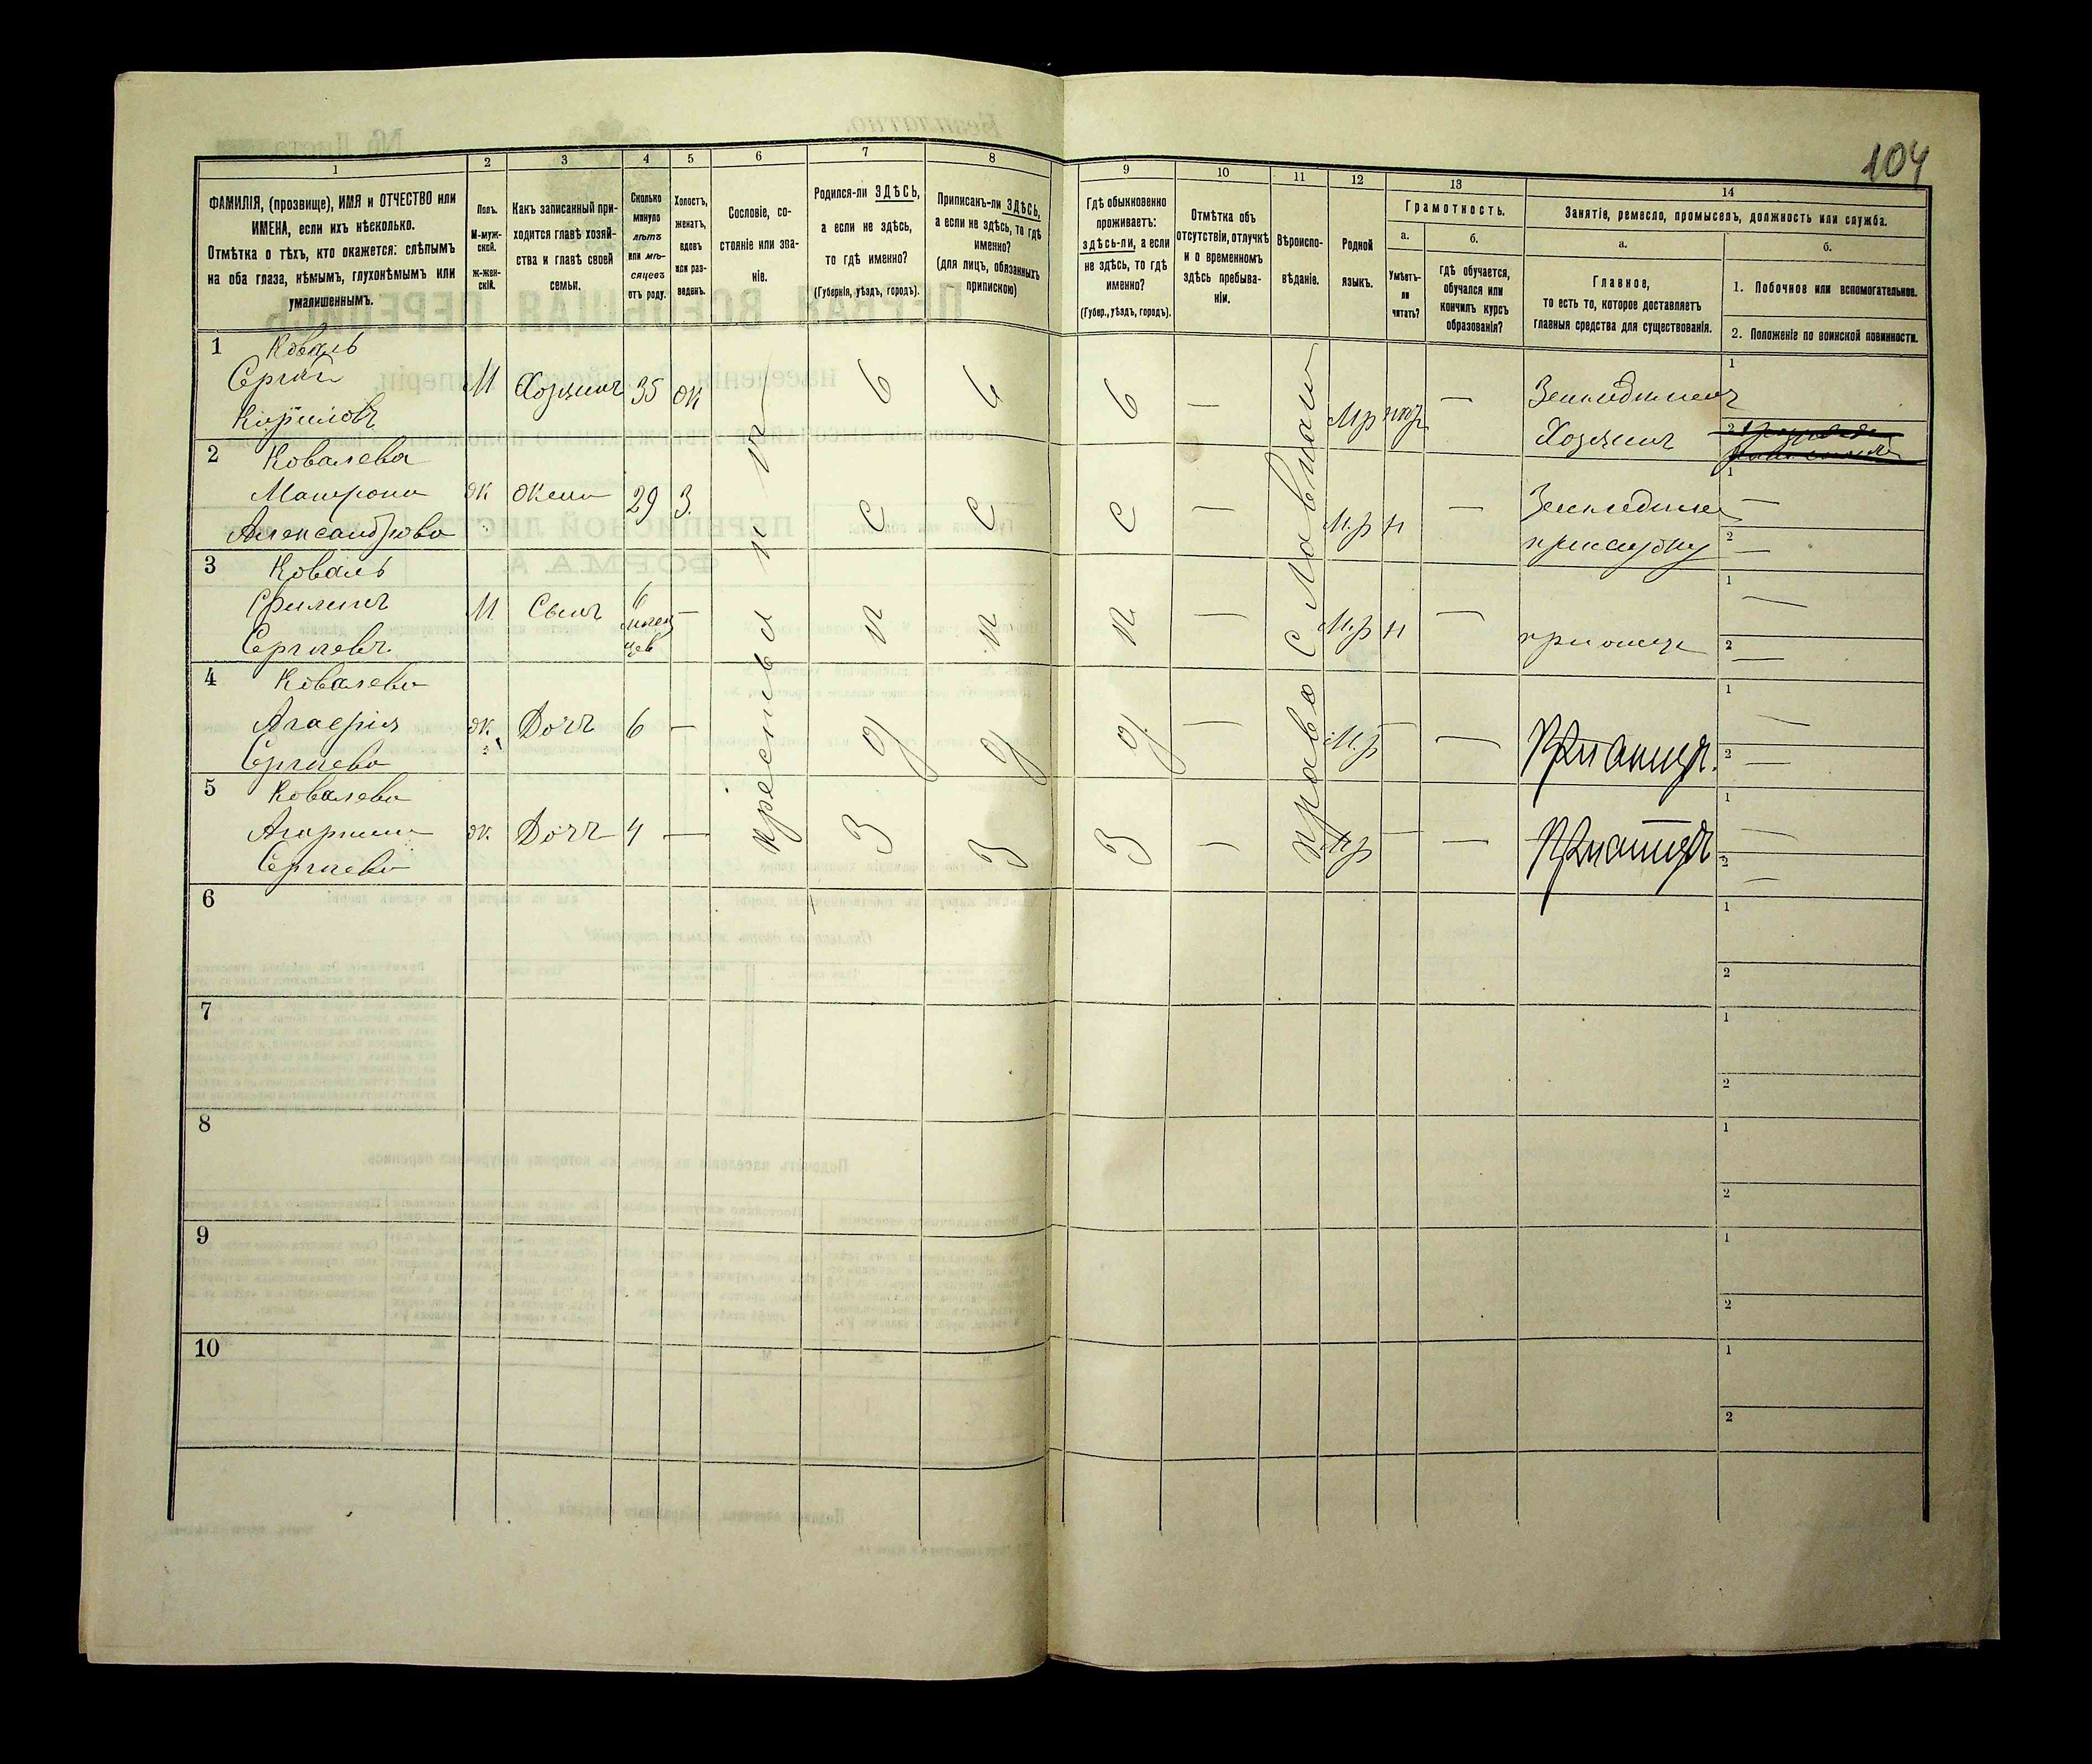 104
1 2 3 4 5 6 7 8 9 10 11 12 13 14
ФАМИЛІЯ, (прозвище), ИМЯ и ОТЧЕСТВО или
ИМЕНА, если ихъ нѣсколько.
Отмѣтка о тѣхъ, кто окажется: слѣпымъ
на оба глаза, нѣмымъ, глухонѣмымъ или
умалишеннымъ.
Полъ.
М-муж-
ской.
Ж-жен-
скій.
Какъ записанный при-
ходится главѣ хозяй-
ства и главѣ своей
семьи.
Сколько
минуло
лѣтъ
или мѣ-
сяцевъ
отъ роду.
Холостъ,
женатъ,
вдовъ
или раз-
веденъ.
Сословіе, со-
стояніе или зва-
ніе.
Родился-ли ЗДѢСЬ,
а если не здѣсь,
то гдѣ именно?
(Губернія, уѣздъ, городъ).
Приписанъ-ли ЗДѢСЬ,
а если не здѣсь, то гдѣ
именно?
(для лицъ, обязанныхъ
припискою)
Гдѣ обыкновенно
проживаетъ:
здѣсь-ли, а если
не здѣсь, то гдѣ
именно?
(Губер., уѣздъ, городъ).
Отмѣтка объ
отсутствіи, отлучкѣ
и о временномъ
здѣсь пребыва-
ніи.
Вѣроиспо-
вѣданіе.
Родной
языкъ.
Грамотность.
а.
Умѣетъ-
ли
читать?
б.
гдѣ обучается,
обучался или
кончилъ курсъ
образованія?
Занятіе, ремесло, промыселъ, должность или служба.
а.
Главное,
то есть то, которое доставляетъ
главныя средства для существованія.
б.
1. Побочное или вспомогательное.
2. Положеніе по воинской повинности.
1 Коваль
Сергѣй
Кириловъ
М Хозяинъ 35 Ж
М.р
Земледелиец
Хозяинъ
2 Ковалева
Матрона
Александрова
ж жена 29 З.
М.р н
Земледелие
при мужу
3 Коваль
Филипъ
Сергѣевъ
М Сынъ 6 месяцев —
М.р н
при отце
4 Ковалева
Агафія
Сергѣева
ж. Дочь 6 —
М.р
При отце.
5 Ковалева
Сергѣева
ж. Дочь 4 —
М.р
При отце
Крестьянин
здесь
здесь
здесь
Православная
6
7
8
9
10